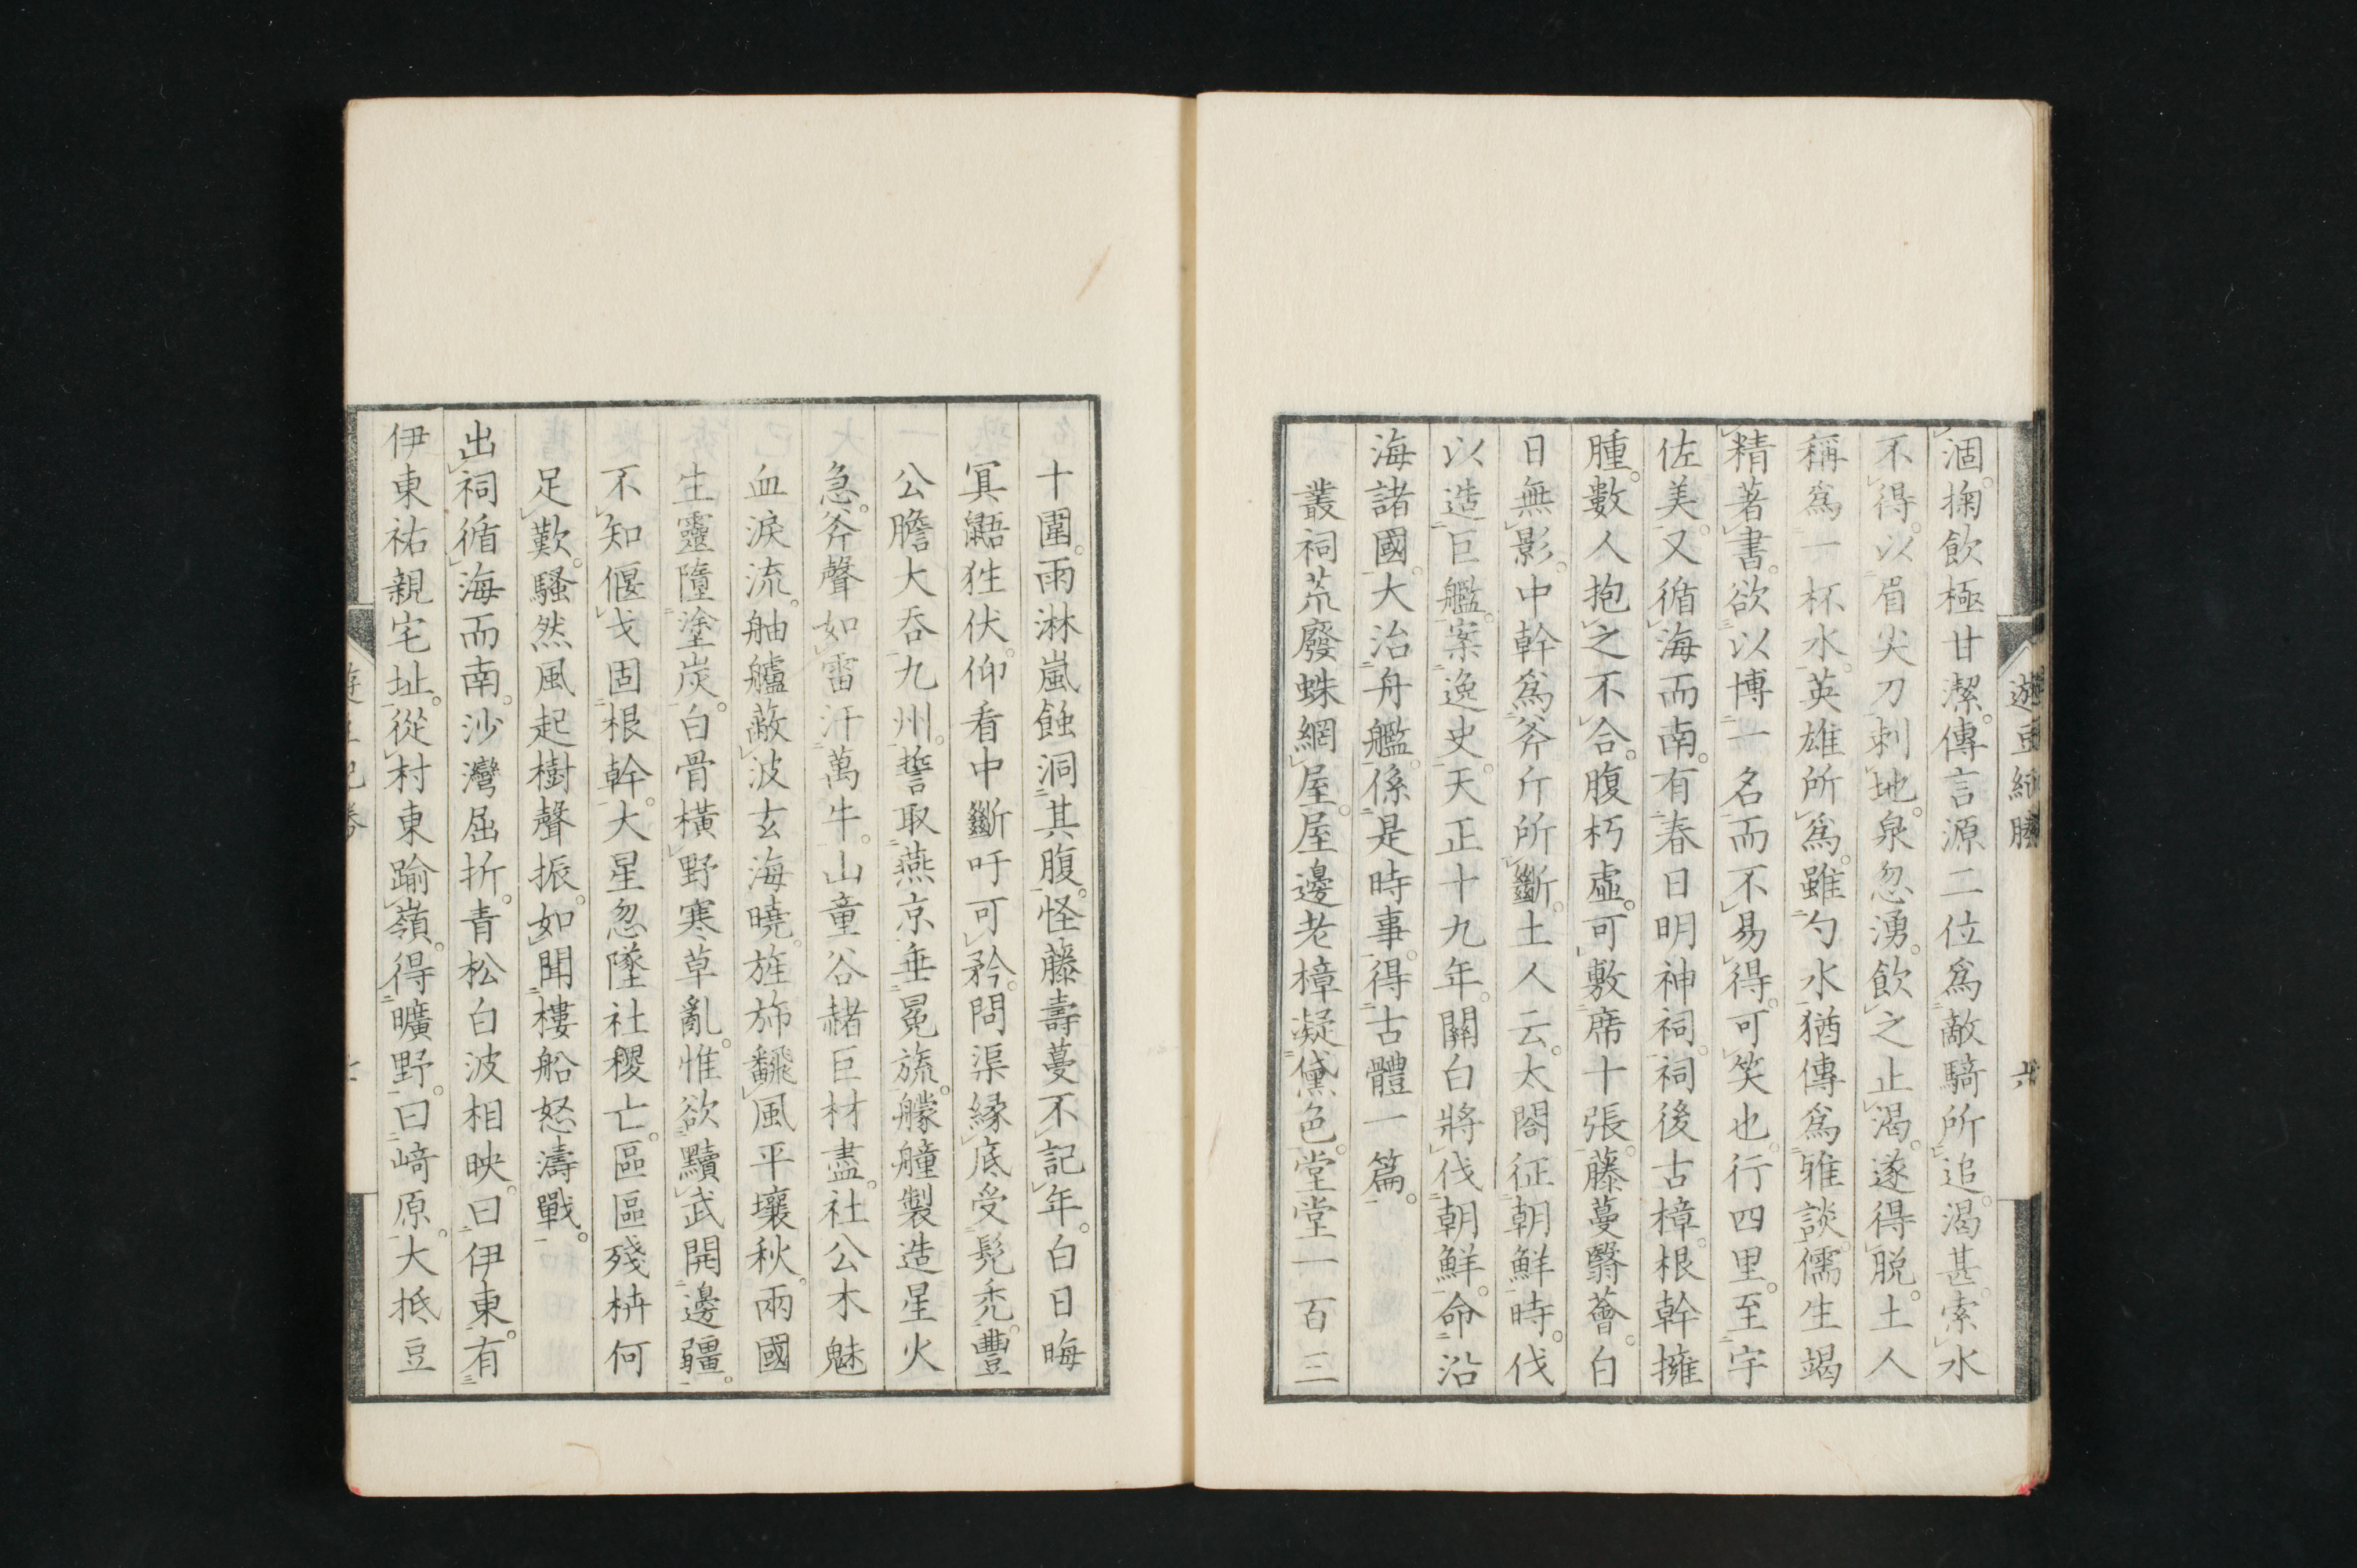 遊豆紀勝 六
涸。掬飲極甘潔。傳言源二位爲敵騎所追。渴甚索水
不得。以眉尖刀刺地。泉忽湧。飲之止渴。遂得脱。土人
稱爲一杯水。英雄所爲。雖勺水猶傳爲雅談。儒生竭
精著書。欲以博一名而不易得。可笑也。行四里。至宇
佐美。又循海而南。有春日明神祠。祠後古樟。根幹擁
腫。數人抱之不合。腹朽虛。可敷席十張。藤蔓翳薈。白
日無影。中幹爲斧斤所斷。土人云。太閤征朝鮮時。伐
以造巨艦。案逸史。天正十九年。關白將伐朝鮮。命沿
海諸國。大治舟艦。係是時事。得古體一篇。
叢祠荒廢蛛網屋。屋邊老樟凝黛色。堂堂一百三
十圍。雨淋嵐蝕洞其腹。怪藤壽蔓不記年。白日晦
冥鼯狌伏。仰看中斷吁可矜。問渠緣底受髡禿。豐
公膽大吞九州。誓取燕京垂冕旒。艨艟製造星火
急。斧聲如雷汗萬牛。山童谷赭巨材盡。社公木魅
血淚流。舳艫蔽波玄海曉。旌旆翻風平壤秋。兩國
生靈墮塗炭。白骨橫野寒草亂。惟欲黷武開邊疆。
不知偃戈固根幹。大星忽墜社稷亡。區區殘枿何
足歎。騷然風起樹聲振。如聞樓船怒濤戰。
出祠循海而南。沙灣屈折。青松白波相映。曰伊東。有
伊東祐親宅址。從村東踰嶺。得曠野。曰﨑原。大抵豆